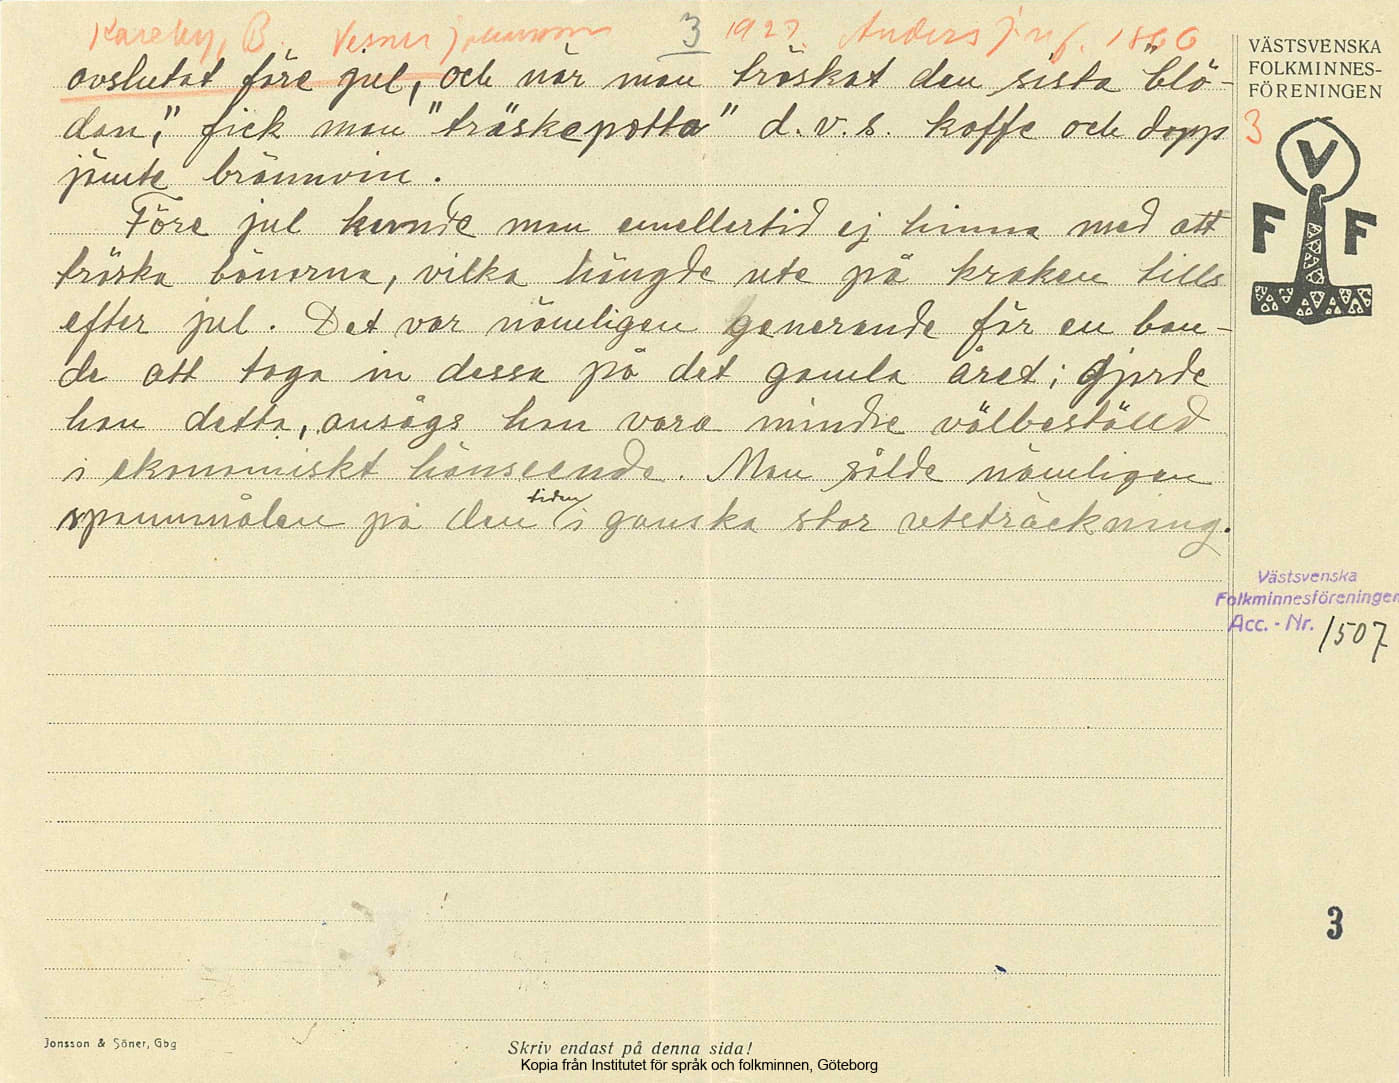 Kareby, B. Verner Johansson 3 1927. Anders J. n f. 1866
avslutat före jul, och när man tröskat den sista "blö-
dan", fick man "träskepotta" d. v. s. kaffe och dopp
jämte brännvin.
Före jul kunde man emellertid ej hinna med att
tröska bönorna, vilka hängde ute på kraken tills
efter jul. Det var nämligen generande för en bon-
de att taga in dessa på det gamla året; gjorde
han detta, ansågs han vara mindre välbeställd
i ekonomiskt hänseende. Man sålde nämligen
spannmålen på den tiden i ganska stor utsträckning.
VÄSTSVENSKA
FOLKMINNES-
FÖRENINGEN
3
V
F F
Västsvenska
Folkminnesföreningen
Acc. - Nr. 1507
3
Jonsson & Söner, Gbg
Skriv endast på denna sida!
Kopia från Institutet för språk och folkminnen, Göteborg